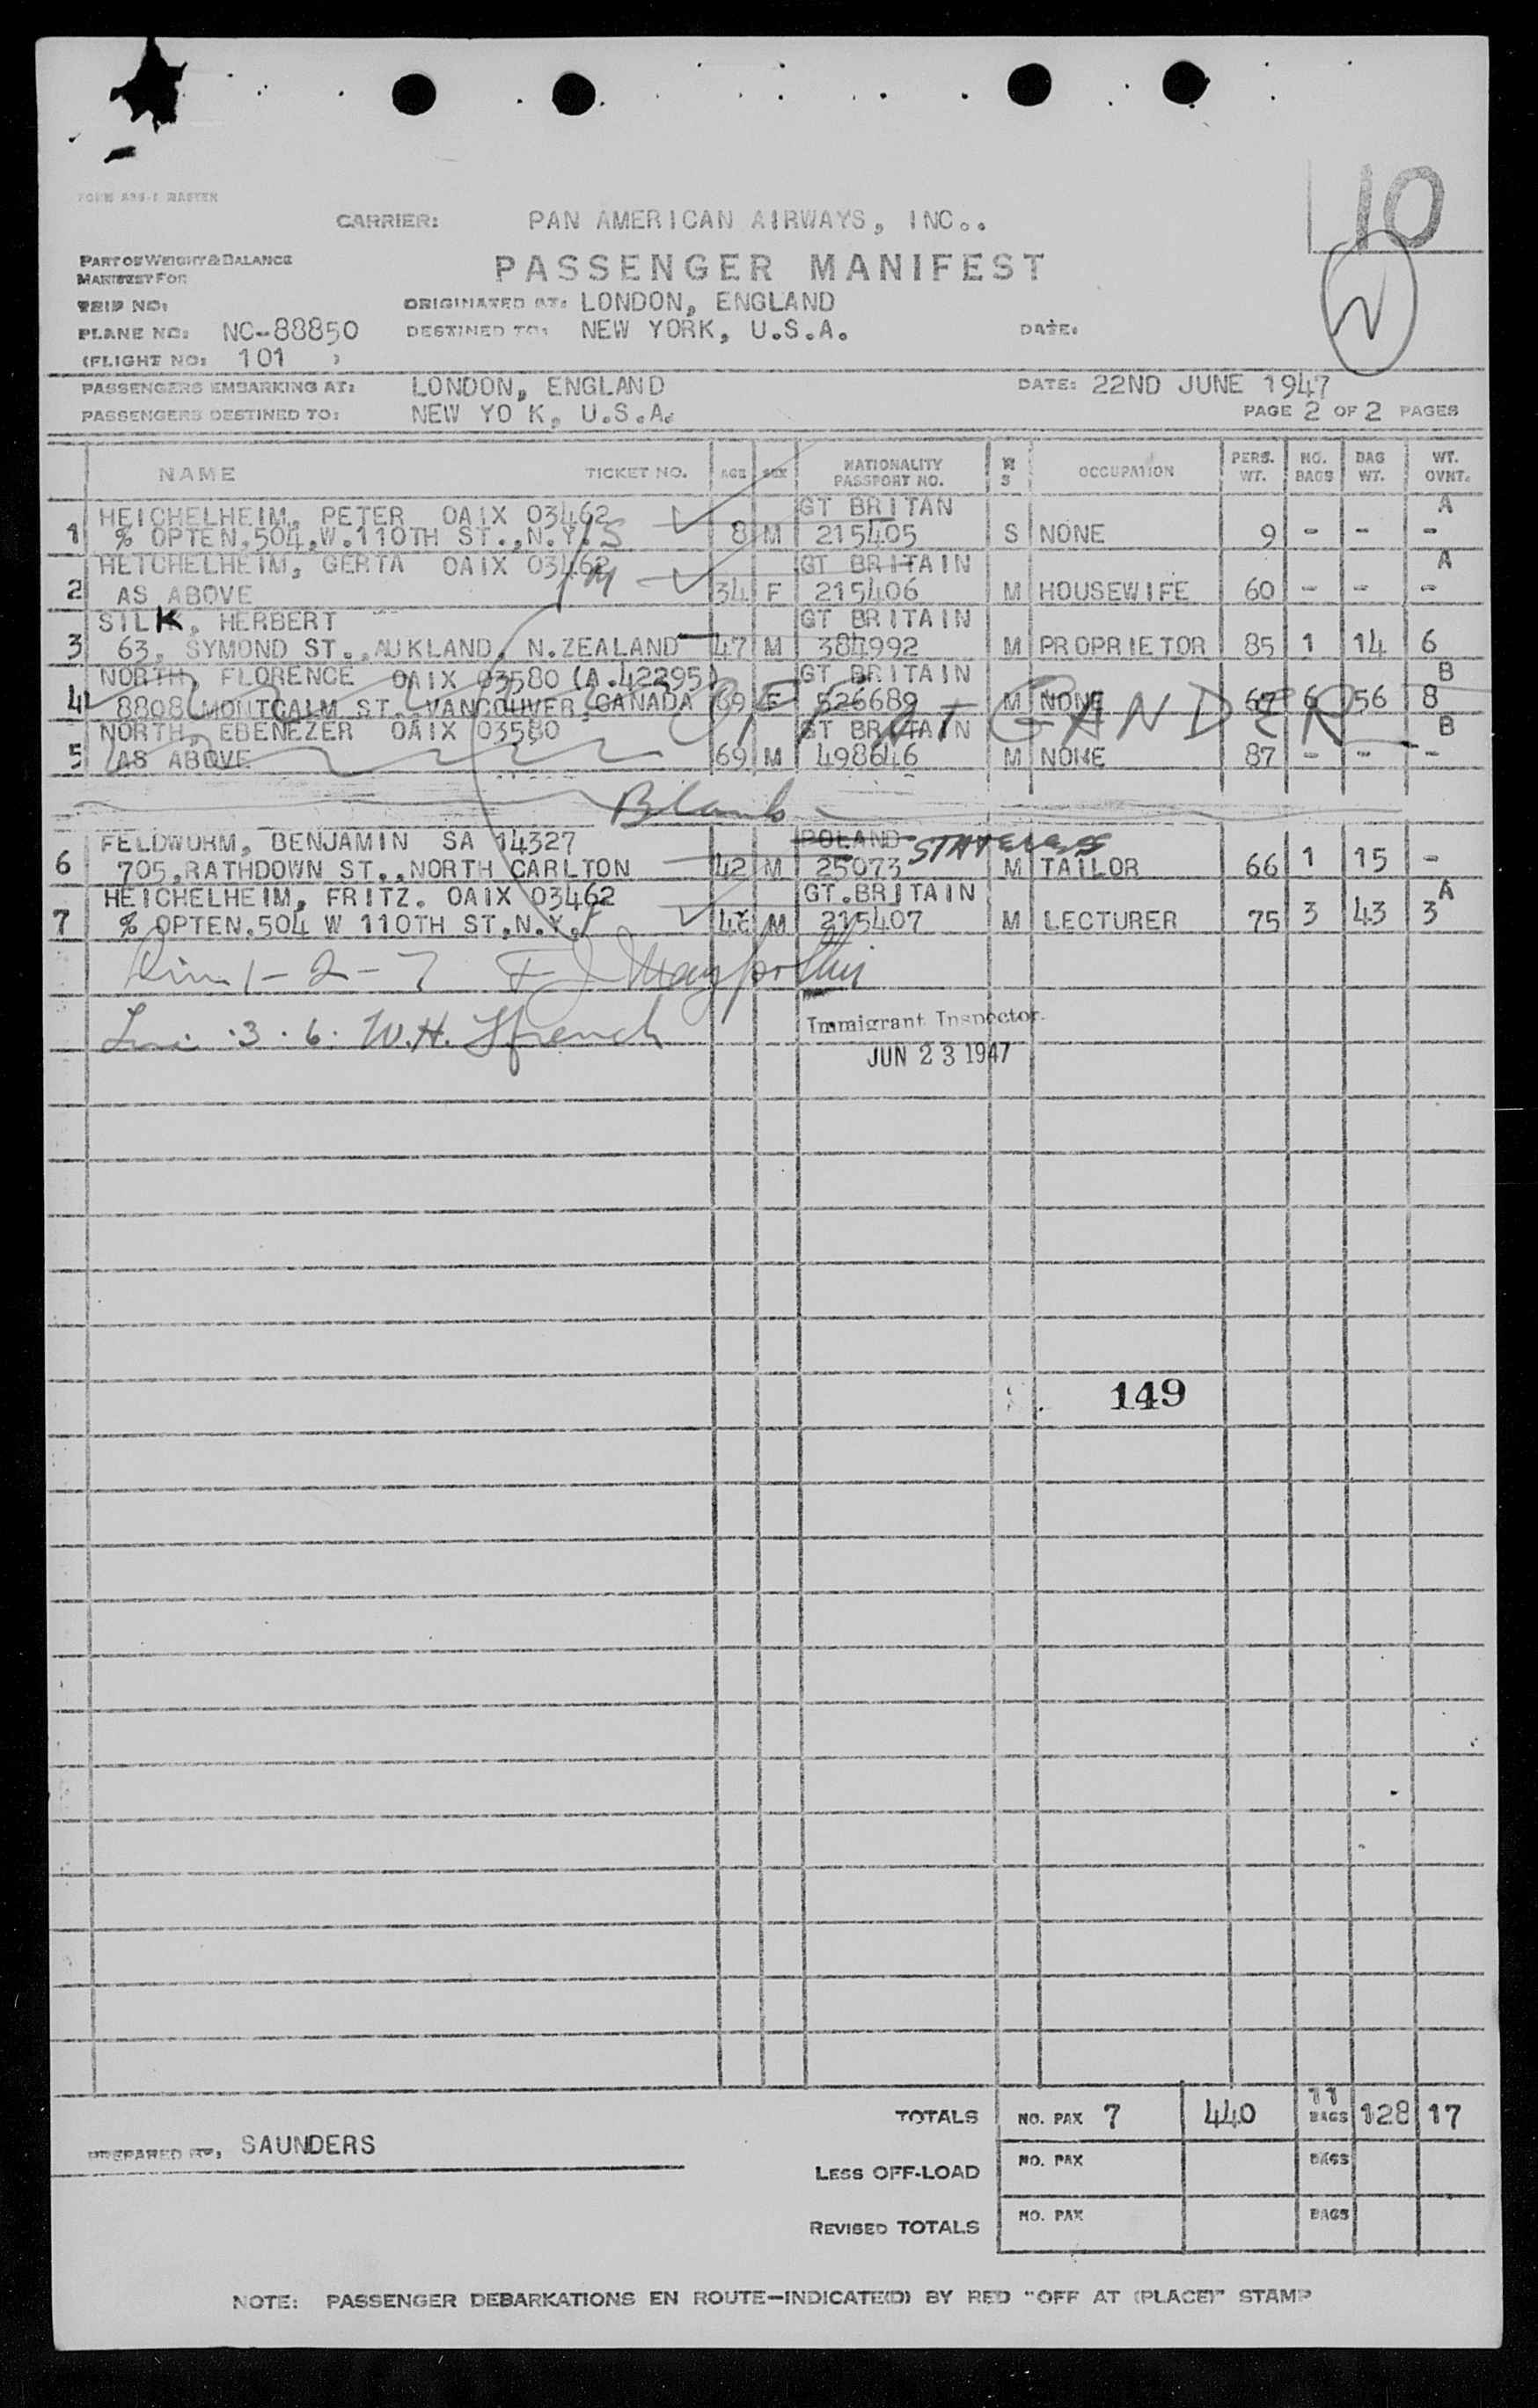 FORM ASB-1 MASTER
10
CARRIER: PAN AMERICAN AIRWAYS, INC..
PART OF WEIGHT & BALANCE
MANIFEST FOR
PASSENGER MANIFEST
2
TRIP NO: ORIGINATED AT: LONDON, ENGLAND
PLANE NO: NC-88850 DESTINED TO: NEW YORK, U.S.A. DATE:
(FLIGHT NO: 101 )
PASSENGERS EMBARKING AT: LONDON, ENGLAND DATE: 22ND JUNE 1947
PASSENGERS DESTINED TO: NEW YO K, U.S.A. PAGE 2 OF 2 PAGES
NAME TICKET NO. AGE SEX NATIONALITY PASSPORT NO. M S OCCUPATION PERS. WT. NO. BAGS BAG WT. WT. OVNT.
HEICHELHEIM, PETER OAIX 03462 GT BRITAN A
1 % OPTEN.504.W.110TH ST.,N.Y. S 8 M 215405 S NONE 9 - - -
HEICHELHEIM, GERTA OAIX 03462 GT BRITAIN A
2 AS ABOVE M 34 F 215406 M HOUSEWIFE 60 - - -
SILK, HERBERT GT BRITAIN
3 63, SYMOND ST.,AUKLAND, N.ZEALAND 47 M 384992 M PROPRIETOR 85 1 14 6
NORTH, FLORENCE OAIX 03580 (A.42295) GT BRITAIN B
4 8808 MONTCALM ST. VANCOUVER, CANADA 69 F 526689 M NONE 67 6 56 8
OFF AT GANDER
NORTH, EBENEZER OAIX 03580 GT BRITAIN B
5 AS ABOVE 69 M 498646 M NONE 87 - - -
Blank
FELDWURM, BENJAMIN SA 14327 POLAND STATELESS
6 705,RATHDOWN ST.,NORTH CARLTON 42 M 25073 M TAILOR 66 1 15 -
HEICHELHEIM, FRITZ. OAIX 03462 GT.BRITAIN A
7 % OPTEN.504 W 110TH ST.N.Y. M 215407 M LECTURER 75 3 43 3
1-2-7
3.6. W.H. Ffrench
Immigrant Inspector.
JUN 23 1947
149
TOTALS NO. PAX 7 440 11 BAGS 128 17
PREPARED BY, SAUNDERS
LESS OFF-LOAD NO. PAX BAGS
REVISED TOTALS NO. PAX BAGS
NOTE: PASSENGER DEBARKATIONS EN ROUTE—INDICATE(D) BY RED "OFF AT (PLACE)" STAMP